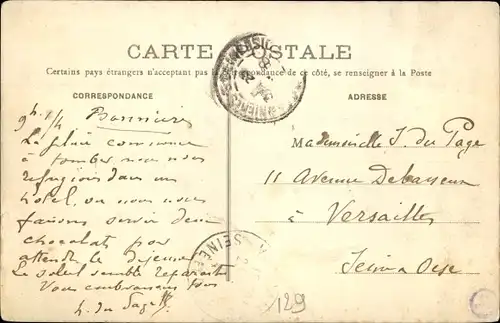 CARTE POSTALE
Certains pays étrangers n'acceptant pas la correspondance de ce côté, se renseigner à la Poste
CORRESPONDANCE
ADRESSE
9h. 1/4 Bonnières
La pluie commence
à tomber, nous nous
refugions dans un
hotel, où nous nous
faisons servir deux
chocolats pour
attendre le dejeuner
Le soleil semble reparaitre
Vous embrassons tous
h. du Page
Mademoiselle J. du Page
11 Avenue Debasseux
à Versailles
Seine & Oise
129